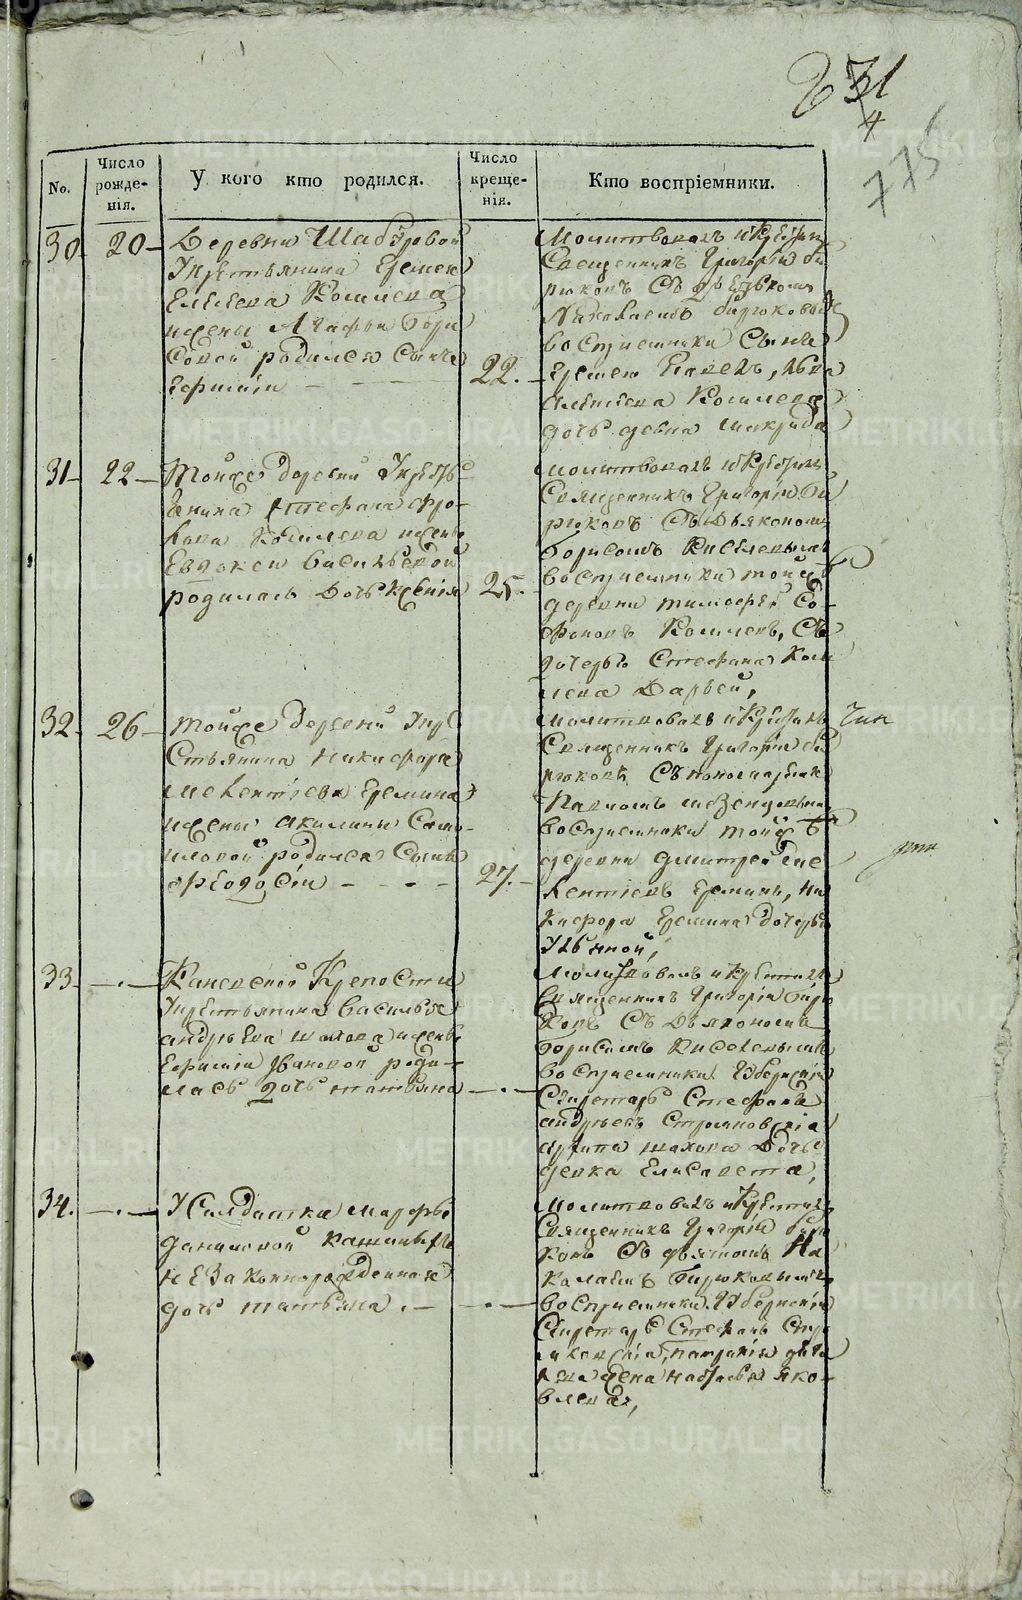 731
4
775
No.
Число рожде-нія.
У кого кто родился.
Число креще-нія.
Кто воспріемники.
30
20
Деревни Шабуровой
Укрестьянина Еремея
Елисеева Кошлева
жены Агафьи Бори
совой родился сынъ
22.
Молитвовалъ икрестилъ
Священникъ Григорій Би
рюковъ Съ
Николаемъ Бирюковы
воспріемники сынъ
Еремея Павелъ,
Елисеева Кошлева
дочь девка
31
22
Тойже деревни Укресть
янина Стефана Фро
лова Кошлева жены
Евдокеи Васильевой
родилась дочь Ксенія
25.
Молитвовалъ икрестилъ
Священникъ Григорій Би
рюковъ Съ Дьякономъ
Борисомъ Киселевымъ
воспріемники тойже
деревни тимофей Со
фоновъ Кошлевъ, Съ
дочерью Стефана Кош
лева Дарьей,
32
26
Тойже деревни Укре
стьянина Никифора
Мекентіева Еремина
жены акилины Само
иловой родился сынъ
Феодосій
27.
Молитвовалъ икрестилъ
Священникъ Григорій Би
рюковъ Съ пономаремъ
Павломъ
воспріемники тойже
деревни дмитрей Ме
кентіевъ Ереминъ, Ни
кифора Еремина дочерью
Ульяной,
33
Каневской Крепости
Укрестьянина Василья
андрѣева шахова жены
Ефиміи Ивановой роди
лась дочь татьяна
Молитвовалъ икрестилъ
Священникъ Григорій Бирю
ковъ Съ Дьякономъ
Борисомъ Киселевымъ
воспріемники Губернскій
Секретарь Стефанъ
андреевъ
шахова Дочь
девка Елисавета,
34.
У Салдатки Марфы
даниловой
незаконнорожденная
дочь татьяна.
Молитвовалъ икрестилъ
Священникъ Григорій Бирю
ковъ Съ дьячкомъ Ни
колаемъ Бирюковымъ
воспріемники Губернскій
Секретарь Стефанъ
жена Наталья яко
влева,